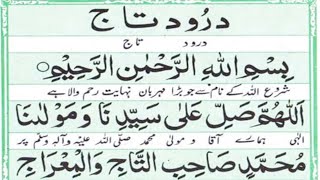 درود تاج
درود تاج
بِسْمِ اللهِ الرَّحْمٰنِ الرَّحِيْمِ
شروع اللہ کے نام سے جو بڑا مہربان نہایت رحم والا ہے
اَللّٰهُمَّ صَلِّ عَلٰى سَيِّدِ نَا وَ مَوْلٰنَا
الٰہی ہمارے آقا و مولیٰ محمد صلی اللہ علیہ وآلہ وسلم پر
مُحَمَّدٍ صَاحِبِ التَّاجِ وَالْمِعْرَاجِ